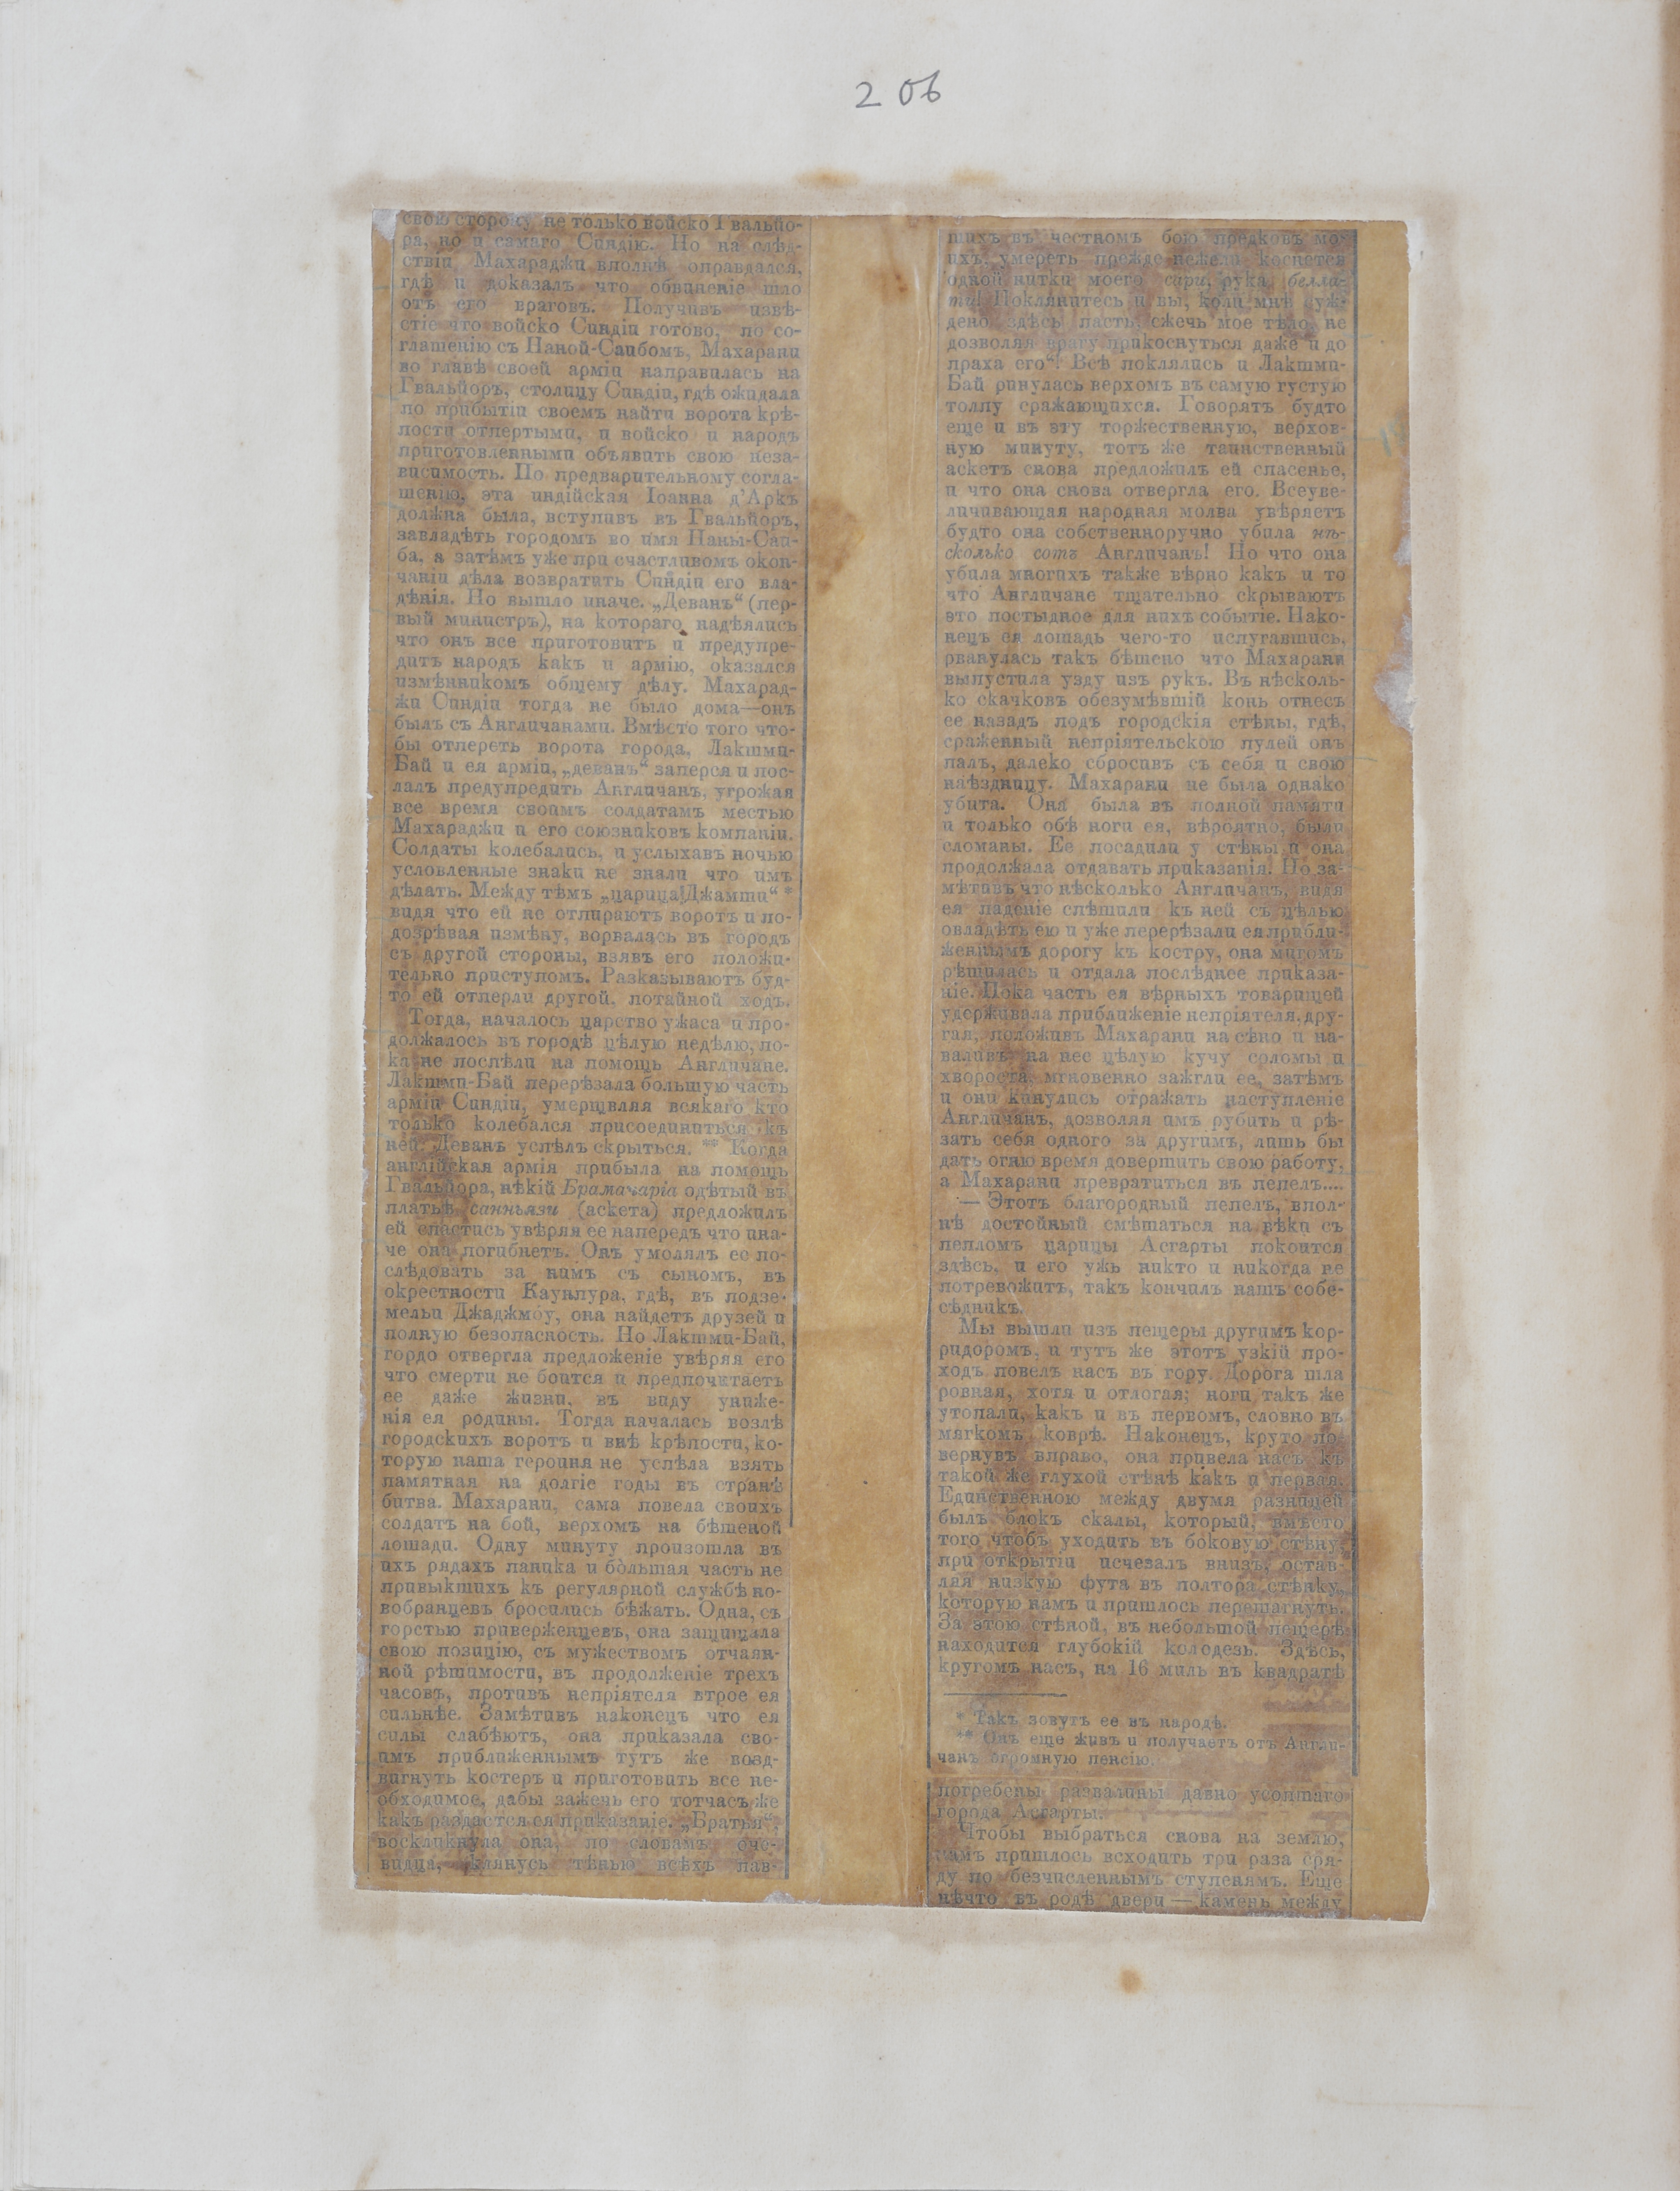 206
свою сторону не только войско Гвальйо-
ра, но и самаго Синдію. Но на слѣд-
ствіи Махараджи вполнѣ оправдался,
гдѣ и доказалъ что обвиненіе шло
отъ его враговъ. Получивъ извѣ-
стіе что войско Синдіи готово, по со-
глашенію съ Наной-Саибомъ, Махарани
во главѣ своей арміи направилась на
Гвальйоръ, столицу Синдіи, гдѣ ожидала
по прибытіи своемъ найти ворота крѣ-
пости отпертыми, и войско и народъ
приготовленными объявить свою неза-
висимость. По предварительному согла-
шенію, эта индійская Іоанна д'Аркъ
должна была, вступивъ въ Гвальйоръ,
завладѣть городомъ во имя Наны-Саи-
ба, а затѣмъ уже при счастливомъ окон-
чаніи дѣла возвратить Синдіи его вла-
дѣнія. Но вышло иначе. „Деванъ“ (пер-
вый министръ), на котораго надѣялись
что онъ все приготовитъ и предупре-
дитъ народъ какъ и армію, оказался
измѣнникомъ общему дѣлу. Махарад-
жи Синдіи тогда не было дома—онъ
былъ съ Англичанами. Вмѣсто того что-
бы отпереть ворота города, Лакшми-
Бай и ея арміи, „деванъ“ заперся и пос-
лалъ предупредить Англичанъ, угрожая
все время своимъ солдатамъ местью
Махараджи и его союзниковъ компаніи.
Солдаты колебались, и услыхавъ ночью
условленные знаки не знали что имъ
дѣлать. Между тѣмъ „царица Джамти“ *
видя что ей не отпираютъ воротъ и по-
дозрѣвая измѣну, ворвалась въ городъ
съ другой стороны, взявъ его положи-
тельно приступомъ. Разказываютъ буд-
то ей отперли другой, потайной ходъ.
Тогда, началось царство ужаса и про-
должалось въ городѣ цѣлую недѣлю, по-
ка не поспѣли на помощь Англичане.
Лакшми-Бай перерѣзала большую часть
арміи Синдіи, умерщвляя всякаго кто
только колебался присоединиться къ
ней. Деванъ успѣлъ скрыться. ** Когда
англійская армія прибыла на помощь
Гвальйора, нѣкій Брамачаріа одѣтый въ
платье санньязи (аскета) предложилъ
ей спастись увѣряя ее напередъ что ина-
че она погибнетъ. Онъ умолялъ ее по-
слѣдовать за нимъ съ сыномъ, въ
окрестности Каунпура, гдѣ, въ подзе-
мельи Джаджмоу, она найдетъ друзей и
полную безопасность. Но Лакшми-Бай,
гордо отвергла предложеніе увѣряя его
что смерти не боится и предпочитаетъ
ее даже жизни, въ виду униже-
нія ея родины. Тогда началась возлѣ
городскихъ воротъ и внѣ крѣпости, ко-
торую наша героиня не успѣла взять
памятная на долгіе годы въ странѣ
битва. Махарани, сама повела своихъ
солдатъ на бой, верхомъ на бѣшеной
лошади. Одну минуту произошла въ
ихъ рядахъ паника и бо̀льшая часть не
привыкшихъ къ регулярной службѣ но-
вобранцевъ бросились бѣжать. Одна, съ
горстью приверженцевъ, она защищала
свою позицію, съ мужествомъ отчаян-
ной рѣшимости, въ продолженіе трехъ
часовъ, противъ непріятеля втрое ея
сильнѣе. Замѣтивъ наконецъ что ея
силы слабѣютъ, она приказала сво-
имъ приближеннымъ тутъ же возд-
вигнуть костеръ и приготовить все не-
обходимое, дабы зажечь его тотчасъ же
какъ раздастся ея приказаніе. „Братья“,
воскликнула она, по словамъ оче-
видца, „клянусь тѣнью всѣхъ пав-
шихъ въ честномъ бою предковъ мо-
ихъ, умереть прежде нежели коснется
одной нитки моего сари, рука белла-
ти! Поклянитесь и вы, коли мнѣ суж-
дено здѣсь пасть, сжечь мое тѣло, не
дозволяя врагу прикоснуться даже и до
праха его“! Всѣ поклялись и Лакшми-
Бай ринулась верхомъ въ самую густую
толпу сражающихся. Говорятъ будто
еще и въ эту торжественную, верхов-
ную минуту, тотъ же таинственный
аскетъ снова предложилъ ей спасенье,
и что она снова отвергла его. Всеуве-
личивающая народная молва увѣряетъ
будто она собственноручно убила нѣ-
сколько сотъ Англичанъ! Но что она
убила многихъ также вѣрно какъ и то
что Англичане тщательно скрываютъ
это постыдное для нихъ событіе. Нако-
нецъ ея лошадь чего-то испугавшись,
рванулась такъ бѣшено что Махарани
выпустила узду изъ рукъ. Въ нѣсколь-
ко скачковъ обезумѣвшій конь отнесъ
ее назадъ подъ городскія стѣны, гдѣ,
сраженный непріятельскою пулей онъ
палъ, далеко сбросивъ съ себя и свою
наѣздницу. Махарани не была однако
убита. Она была въ полной памяти
и только обѣ ноги ея, вѣроятно, были
сломаны. Ее посадили у стѣны и она
продолжала отдавать приказанія. Но за-
мѣтивъ что нѣсколько Англичанъ, видя
ея паденіе спѣшили къ ней съ цѣлью
овладѣть ею и уже перерѣзали ея прибли-
женнымъ дорогу къ костру, она мигомъ
рѣшилась и отдала послѣднее приказа-
ніе. Пока часть ея вѣрныхъ товарищей
удерживала приближеніе непріятеля, дру-
гая, положивъ Махарани на сѣно и на-
валивъ на нее цѣлую кучу соломы и
хвороста, мгновенно зажгли ее, затѣмъ
и они кинулись отражать наступленіе
Англичанъ, дозволяя имъ рубить и рѣ-
зать себя одного за другимъ, лишь бы
дать огню время довершить свою работу,
а Махарани превратиться въ пепелъ....
— Этотъ благородный пепелъ, впол-
нѣ достойный смѣшаться на вѣки съ
пепломъ царицы Асгарты покоится
здѣсь, и его ужь никто и никогда не
потревожитъ, такъ кончилъ нашъ собе-
сѣдникъ.
Мы вышли изъ пещеры другимъ кор-
ридоромъ, и тутъ же этотъ узкій про-
ходъ повелъ насъ въ гору. Дорога шла
ровная, хотя и отлогая; ноги такъ же
утопали, какъ и въ первомъ, словно въ
мягкомъ коврѣ. Наконецъ, круто по-
вернувъ вправо, она привела насъ къ
такой же глухой стѣнѣ какъ и первая.
Единственною между двумя разницей
былъ блокъ скалы, который, вмѣсто
того чтобъ уходить въ боковую стѣну,
при открытіи исчезалъ внизъ, остав-
ляя низкую фута въ полтора стѣнку,
которую намъ и пришлось перешагнуть.
За этою стѣной, въ небольшой пещерѣ
находится глубокій колодезь. Здѣсь,
кругомъ насъ, на 16 миль въ квадратѣ
* Такъ зовутъ ее въ народѣ.
** Онъ еще живъ и получаетъ отъ Англи-
чанъ огромную пенсію.
погребены развалины давно усопшаго
города Асгарты.
Чтобы выбраться снова на землю,
намъ пришлось всходить три раза сря-
ду по безчисленнымъ ступенямъ. Еще
нѣчто въ родѣ двери — камень между